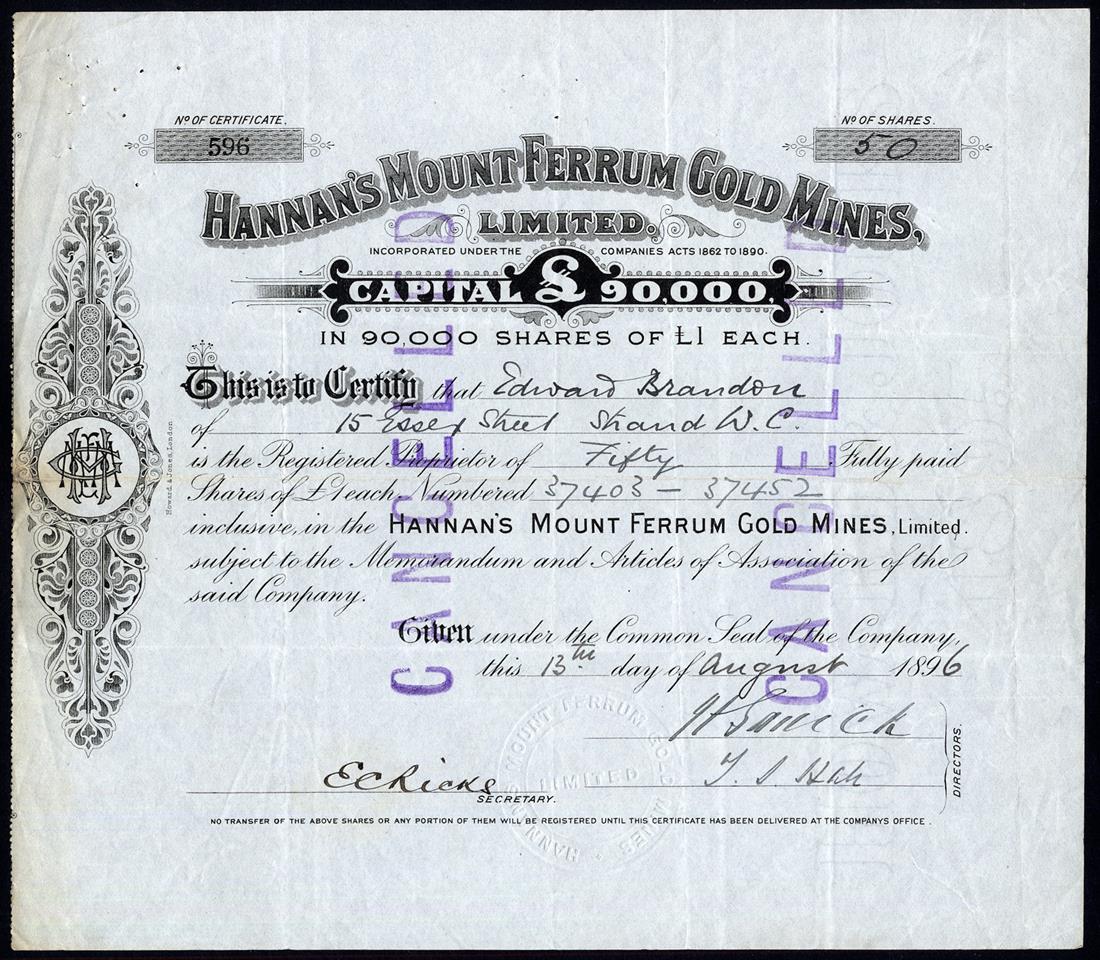 Nº OF CERTIFICATE.
596
Nº OF SHARES.
50
HANNAN'S MOUNT FERRUM GOLD MINES,
LIMITED.
INCORPORATED UNDER THE COMPANIES ACTS 1862 TO 1890.
CAPITAL £ 90,000,
IN 90,000 SHARES OF £1 EACH.
This is to Certify that Edward Brandon
of 15 Essex Street Strand W.C.
is the Registered Proprietor of Fifty Fully paid
Shares of £1 each, Numbered 37403 — 37452
inclusive, in the HANNAN'S MOUNT FERRUM GOLD MINES, Limited.
subject to the Memorandum and Articles of Association of the
said Company.
Given under the Common Seal of the Company,
this 13th day of August 1896
DIRECTORS.
SECRETARY.
NO TRANSFER OF THE ABOVE SHARES OR ANY PORTION OF THEM WILL BE REGISTERED UNTIL THIS CERTIFICATE HAS BEEN DELIVERED AT THE COMPANYS OFFICE.
Howard & Jones, London
CANCELLED
CANCELLED
HANNAN'S MOUNT FERRUM GOLD MINES
LIMITED